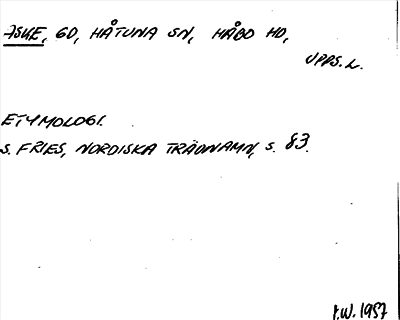 ASKE, GD, HÅTUNA SN, HÅBO HD,
UPPS. L.
ETYMOLOGI.
S. FRIES, NORDISKA TRÄDNAMN, S. 83.
I.W. 1957